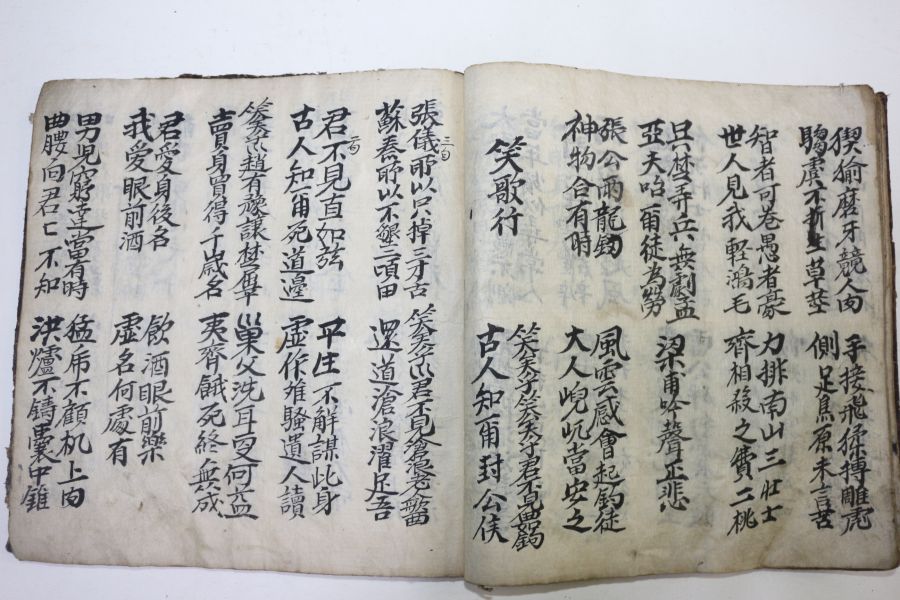 猰揄磨牙競人肉
騶虞不折生草莖
手接飛猱搏雕虎
側足焦原未言苦
智者可卷愚者豪
世人見我輕鴻毛
力排南山三壯士
齊相殺之費二桃
只楚弄兵無劇孟
亞夫咍爾徒為勞
梁甫吟聲正悲
張公兩龍釰
神物合有時
風雲感會起釣徒
大人峴屼當安之
笑歌行
笑矣乎笑矣乎君不見曲如鈎
古人知爾封公侯
張儀所以只掉三寸舌
蘇秦所以不墾二項田
笑矣乎君不見滄浪老人歌曲
還道滄浪濯足吾
君不見直如弦
古人知爾死道邊
平生不解謀此身
虛作離騷遺人讀
笑矣乎趙有豫讓楚屈平
賣身買得千歲名
巢父洗耳有何益
夷齊餓死終無成
君愛身後名
我愛眼前酒
飲酒眼前樂
虛名何處有
男兒窮達當有時
曲腰向君匕不知
猛虎不顧机上肉
洪爐不鑄囊中錐